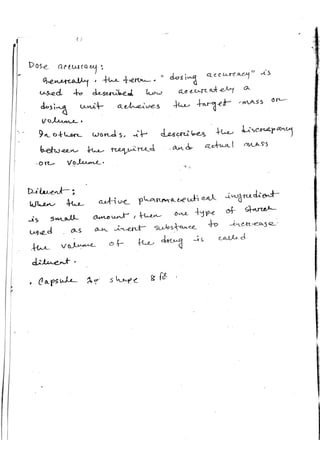 Dose accuracy:
Generally, the term "dosing accuracy" is
used to described how accurately a
dosing unit acheives the target mass or
volume.
In other words, it describes the discrepancy
between the required and actual mass
or volume.
Diluent:
When the active pharmaceutical ingredient
is small amount, then one type of starch
used as an inert substance to increase
the volume of the drug is called
diluent.
. Capsule shape